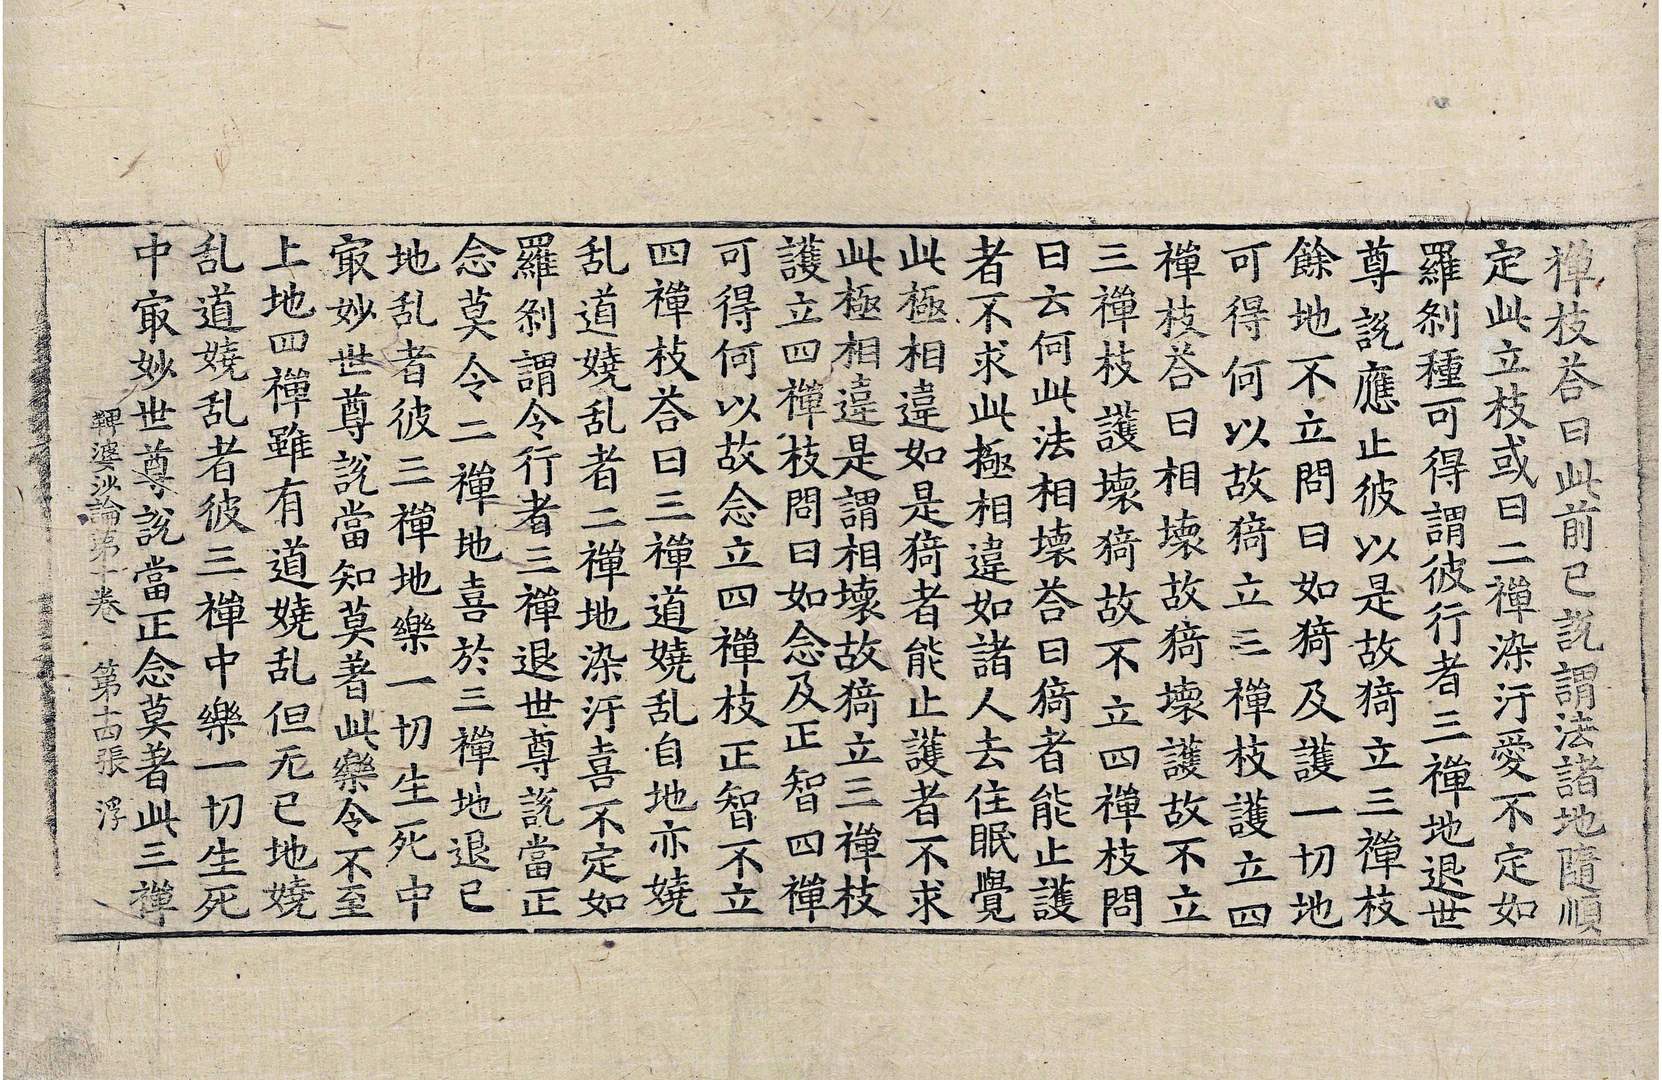 禅枝荅曰此前已說謂法諸地隨順
定此立枝或曰二禪染汙愛不定如
羅刹種可得謂彼行者三禪地退世
尊說應止彼以是故猗立三禪枝
餘地不立問曰如猗及護一切地
可得何以故猗立三禪枝護立四
禪枝荅曰相壞故猗壞護故不立
三禪枝護壞猗故不立四禪枝問
曰云何此法相壞荅曰猗者能止護
者不求此極相違如諸人去住眠覺
此極相違如是猗者能止護者不求
此極相違是謂相壞故猗立三禪枝
護立四禪枝問曰如念及正智四禪
可得何以故念立四禪枝正智不立
四禪枝荅曰三禪道嬈乱自地亦嬈
乱道嬈乱者二禪地染汙喜不定如
羅刹謂令行者三禪退世尊說當正
念莫令二禪地喜於三禪地退已
地乱者彼三禪地樂一切生死中
㝡妙世尊說當知莫著此樂令不至
上地四禪雖有道嬈乱但无已地嬈
乱道嬈乱者彼三禪中樂一切生死
中㝡妙世尊說當正念莫著此三禪
鞞婆沙論第十卷　第十四張　浮